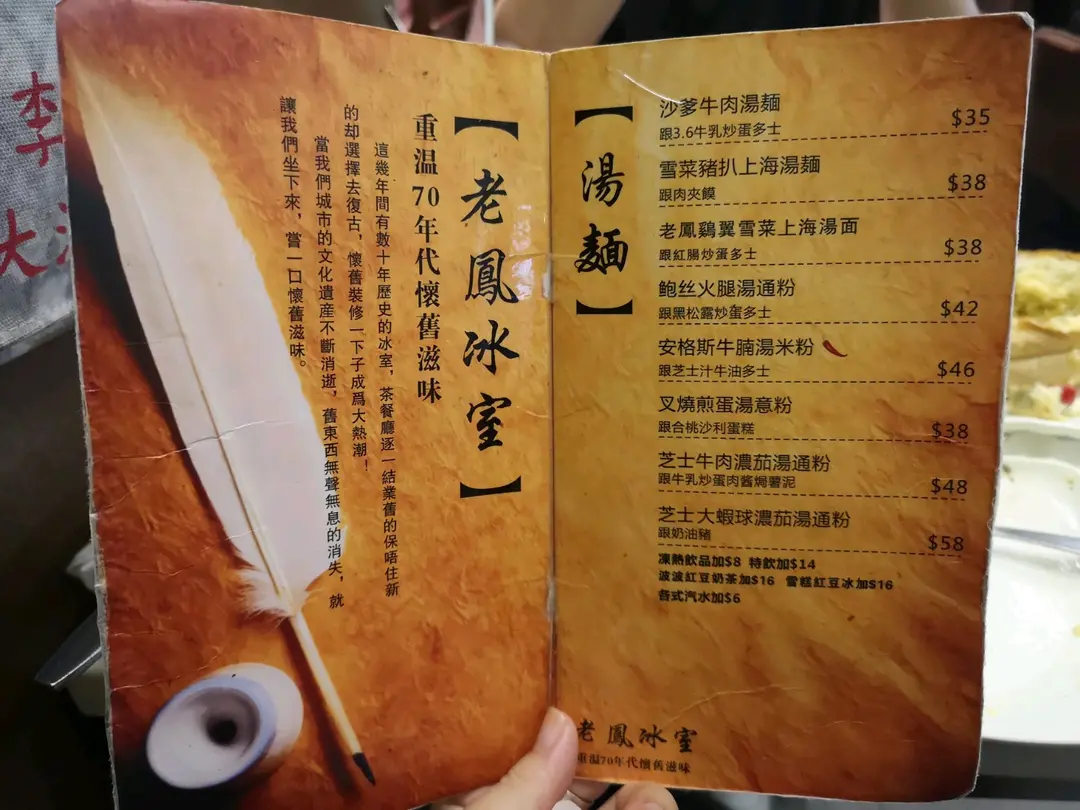 【老鳳冰室】
重温70年代懷舊滋味
這幾年間有數十年歷史的冰室，茶餐廳逐一結業舊的保唔住新
的却選擇去復古，懷舊裝修一下子成爲大熱潮！
當我們城市的文化遺産不斷消逝，舊東西無聲無息的消失，就
讓我們坐下來，嘗一口懷舊滋味。
【湯麵】
沙爹牛肉湯麵 $35
跟3.6牛乳炒蛋多士
雪菜豬扒上海湯麵 $38
跟肉夾饃
老鳳鷄翼雪菜上海湯面 $38
跟紅腸炒蛋多士
鮑丝火腿湯通粉 $42
跟黑松露炒蛋多士
安格斯牛腩湯米粉 $46
跟芝士汁牛油多士
叉燒煎蛋湯意粉 $38
跟合桃沙利蛋糕
芝士牛肉濃茄湯通粉 $48
跟牛乳炒蛋肉酱焗薯泥
芝士大蝦球濃茄湯通粉 $58
跟奶油豬
凍熱飲品加$8 特飲加$14
波波紅豆奶茶加$16 雪糕紅豆冰加$16
各式汽水加$6
老鳳冰室
重温70年代懷舊滋味
李
大